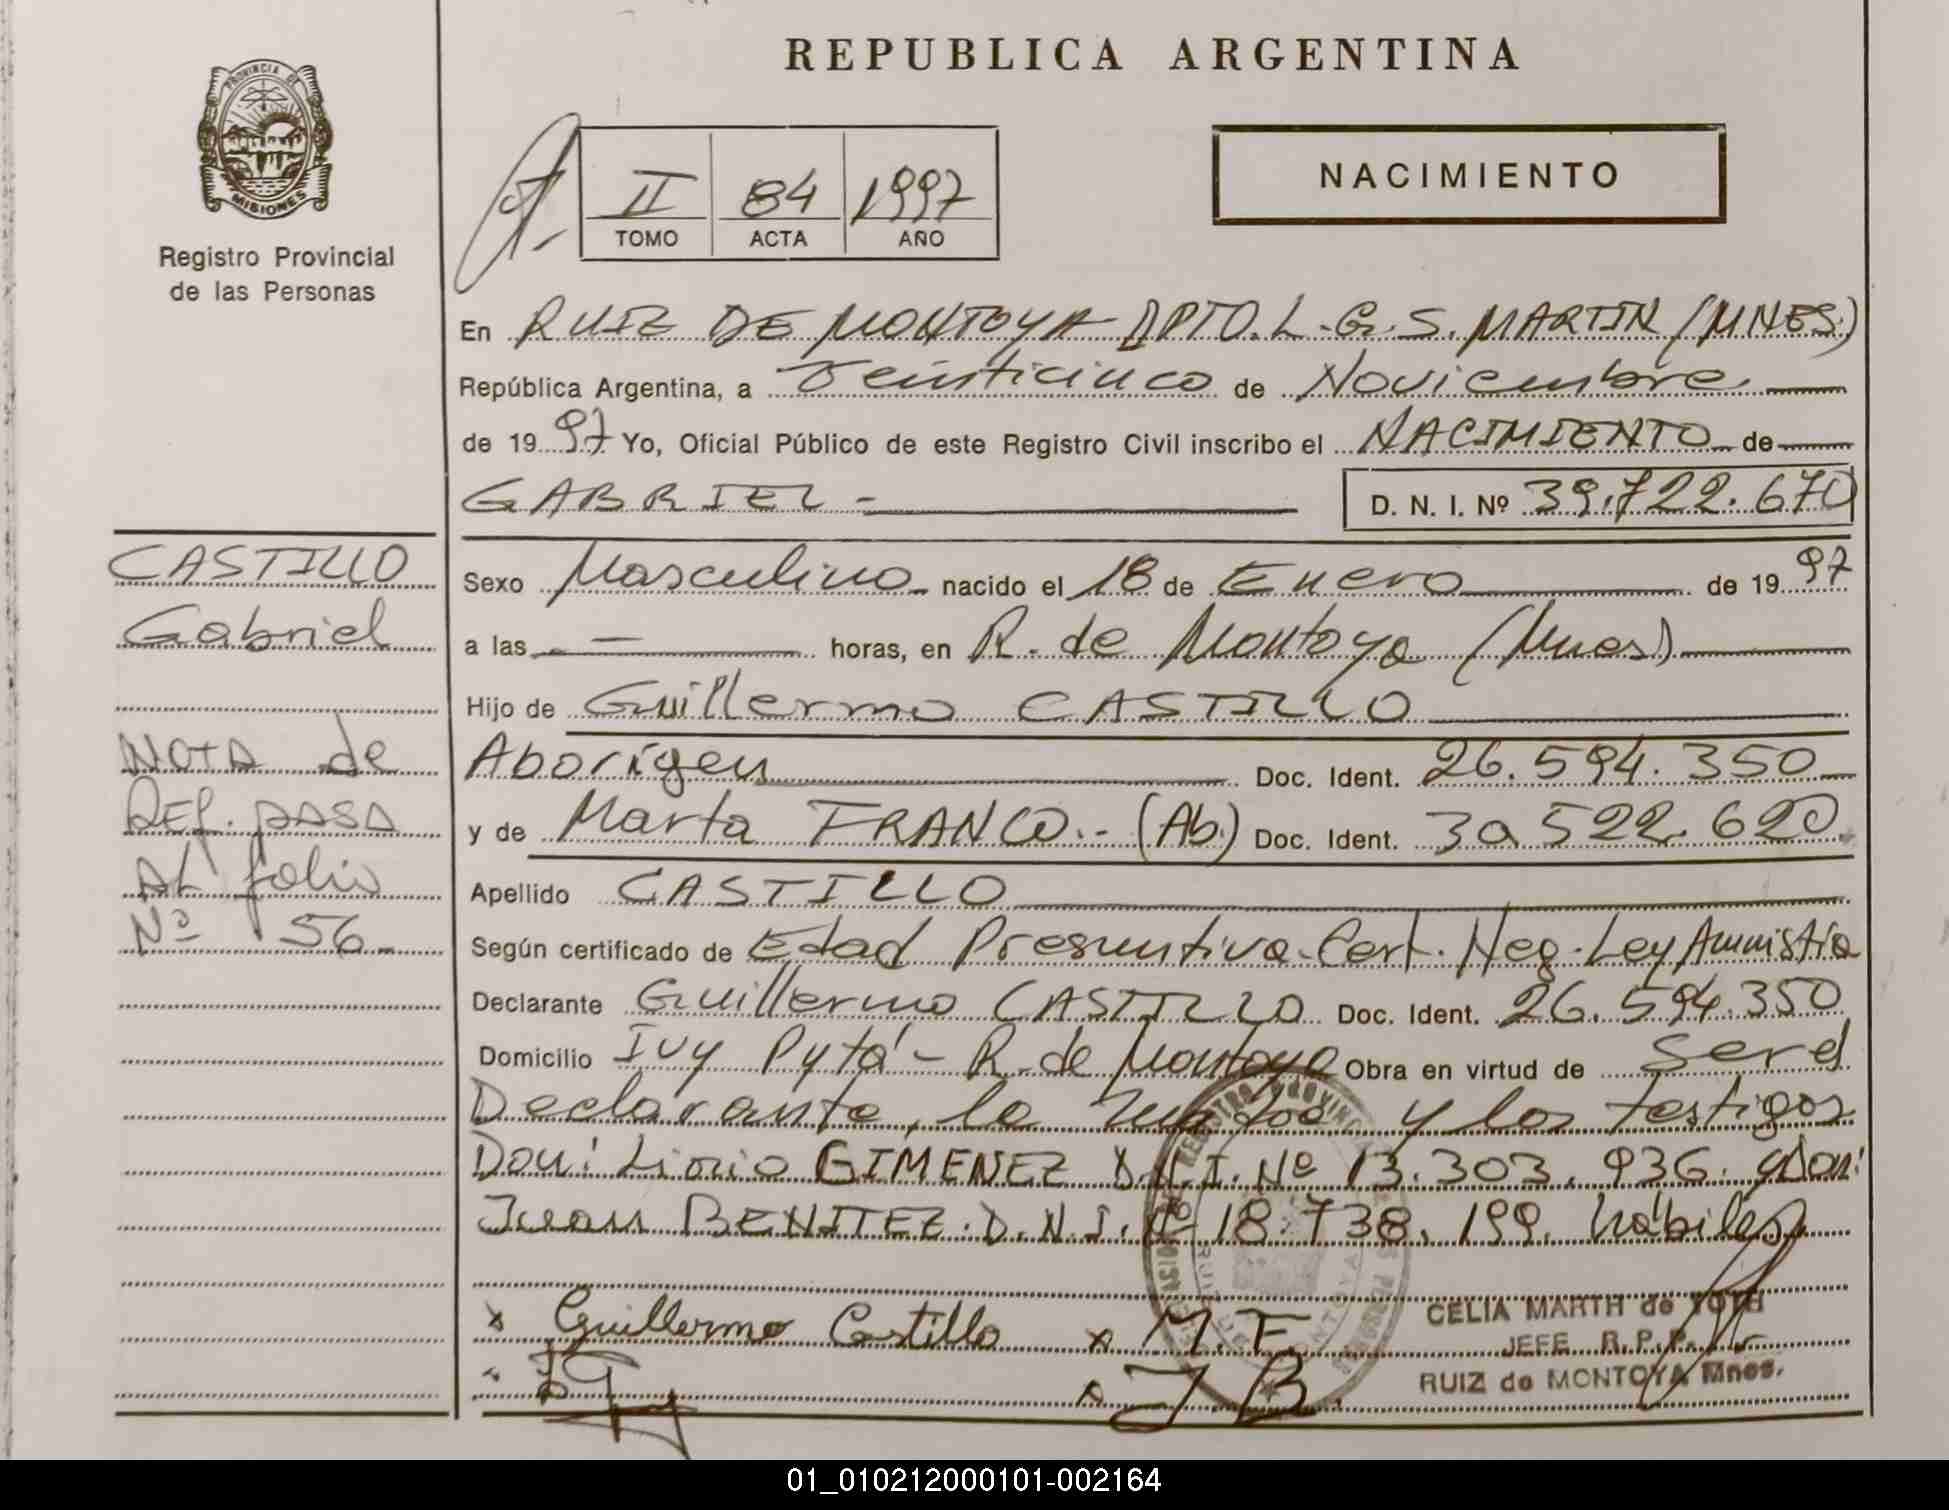 REPUBLICA ARGENTINA
PROVINCIA DE
MISIONES
Registro Provincial
de las Personas
II 84 1997
TOMO ACTA AÑO
NACIMIENTO
En RUIZ DE MONTOYA DPTO. L.G.S. MARTIN (MNES)
República Argentina, a Veinticinco de Noviembre
de 1997 Yo, Oficial Público de este Registro Civil inscribo el NACIMIENTO de
GABRIEL - D. N. I. Nº 39.722.670
Sexo Masculino nacido el 18 de Enero de 1997
a las — horas, en R. de Montoya (Mnes)
Hijo de Guillermo CASTILLO
Aborígen Doc. Ident. 26.594.350
y de Marta FRANCO.- (Ab.) Doc. Ident. 30.522.620
Apellido CASTILLO
Según certificado de Edad Presuntiva-Cert. Neg. Ley Amnistía
Declarante Guillermo CASTILLO Doc. Ident. 26.594.350
Domicilio Ivy Pytá - R. de Montoya Obra en virtud de Ser el
Declarante, la madre y los testigos
Don: Livio GIMENEZ D.N.I. Nº 13.303.936. y Don:
Juan BENITEZ. D.N.I. Nº 18.738.199. hábiles
x Guillermo Castillo x M.F.
x J B.
CELIA MARTH de TOTH
JEFE R.P.P.
RUIZ de MONTOYA Mnes.
CASTILLO
Gabriel
NOTA de
REF. PASA
AL folio
Nº 56
01_010212000101-002164